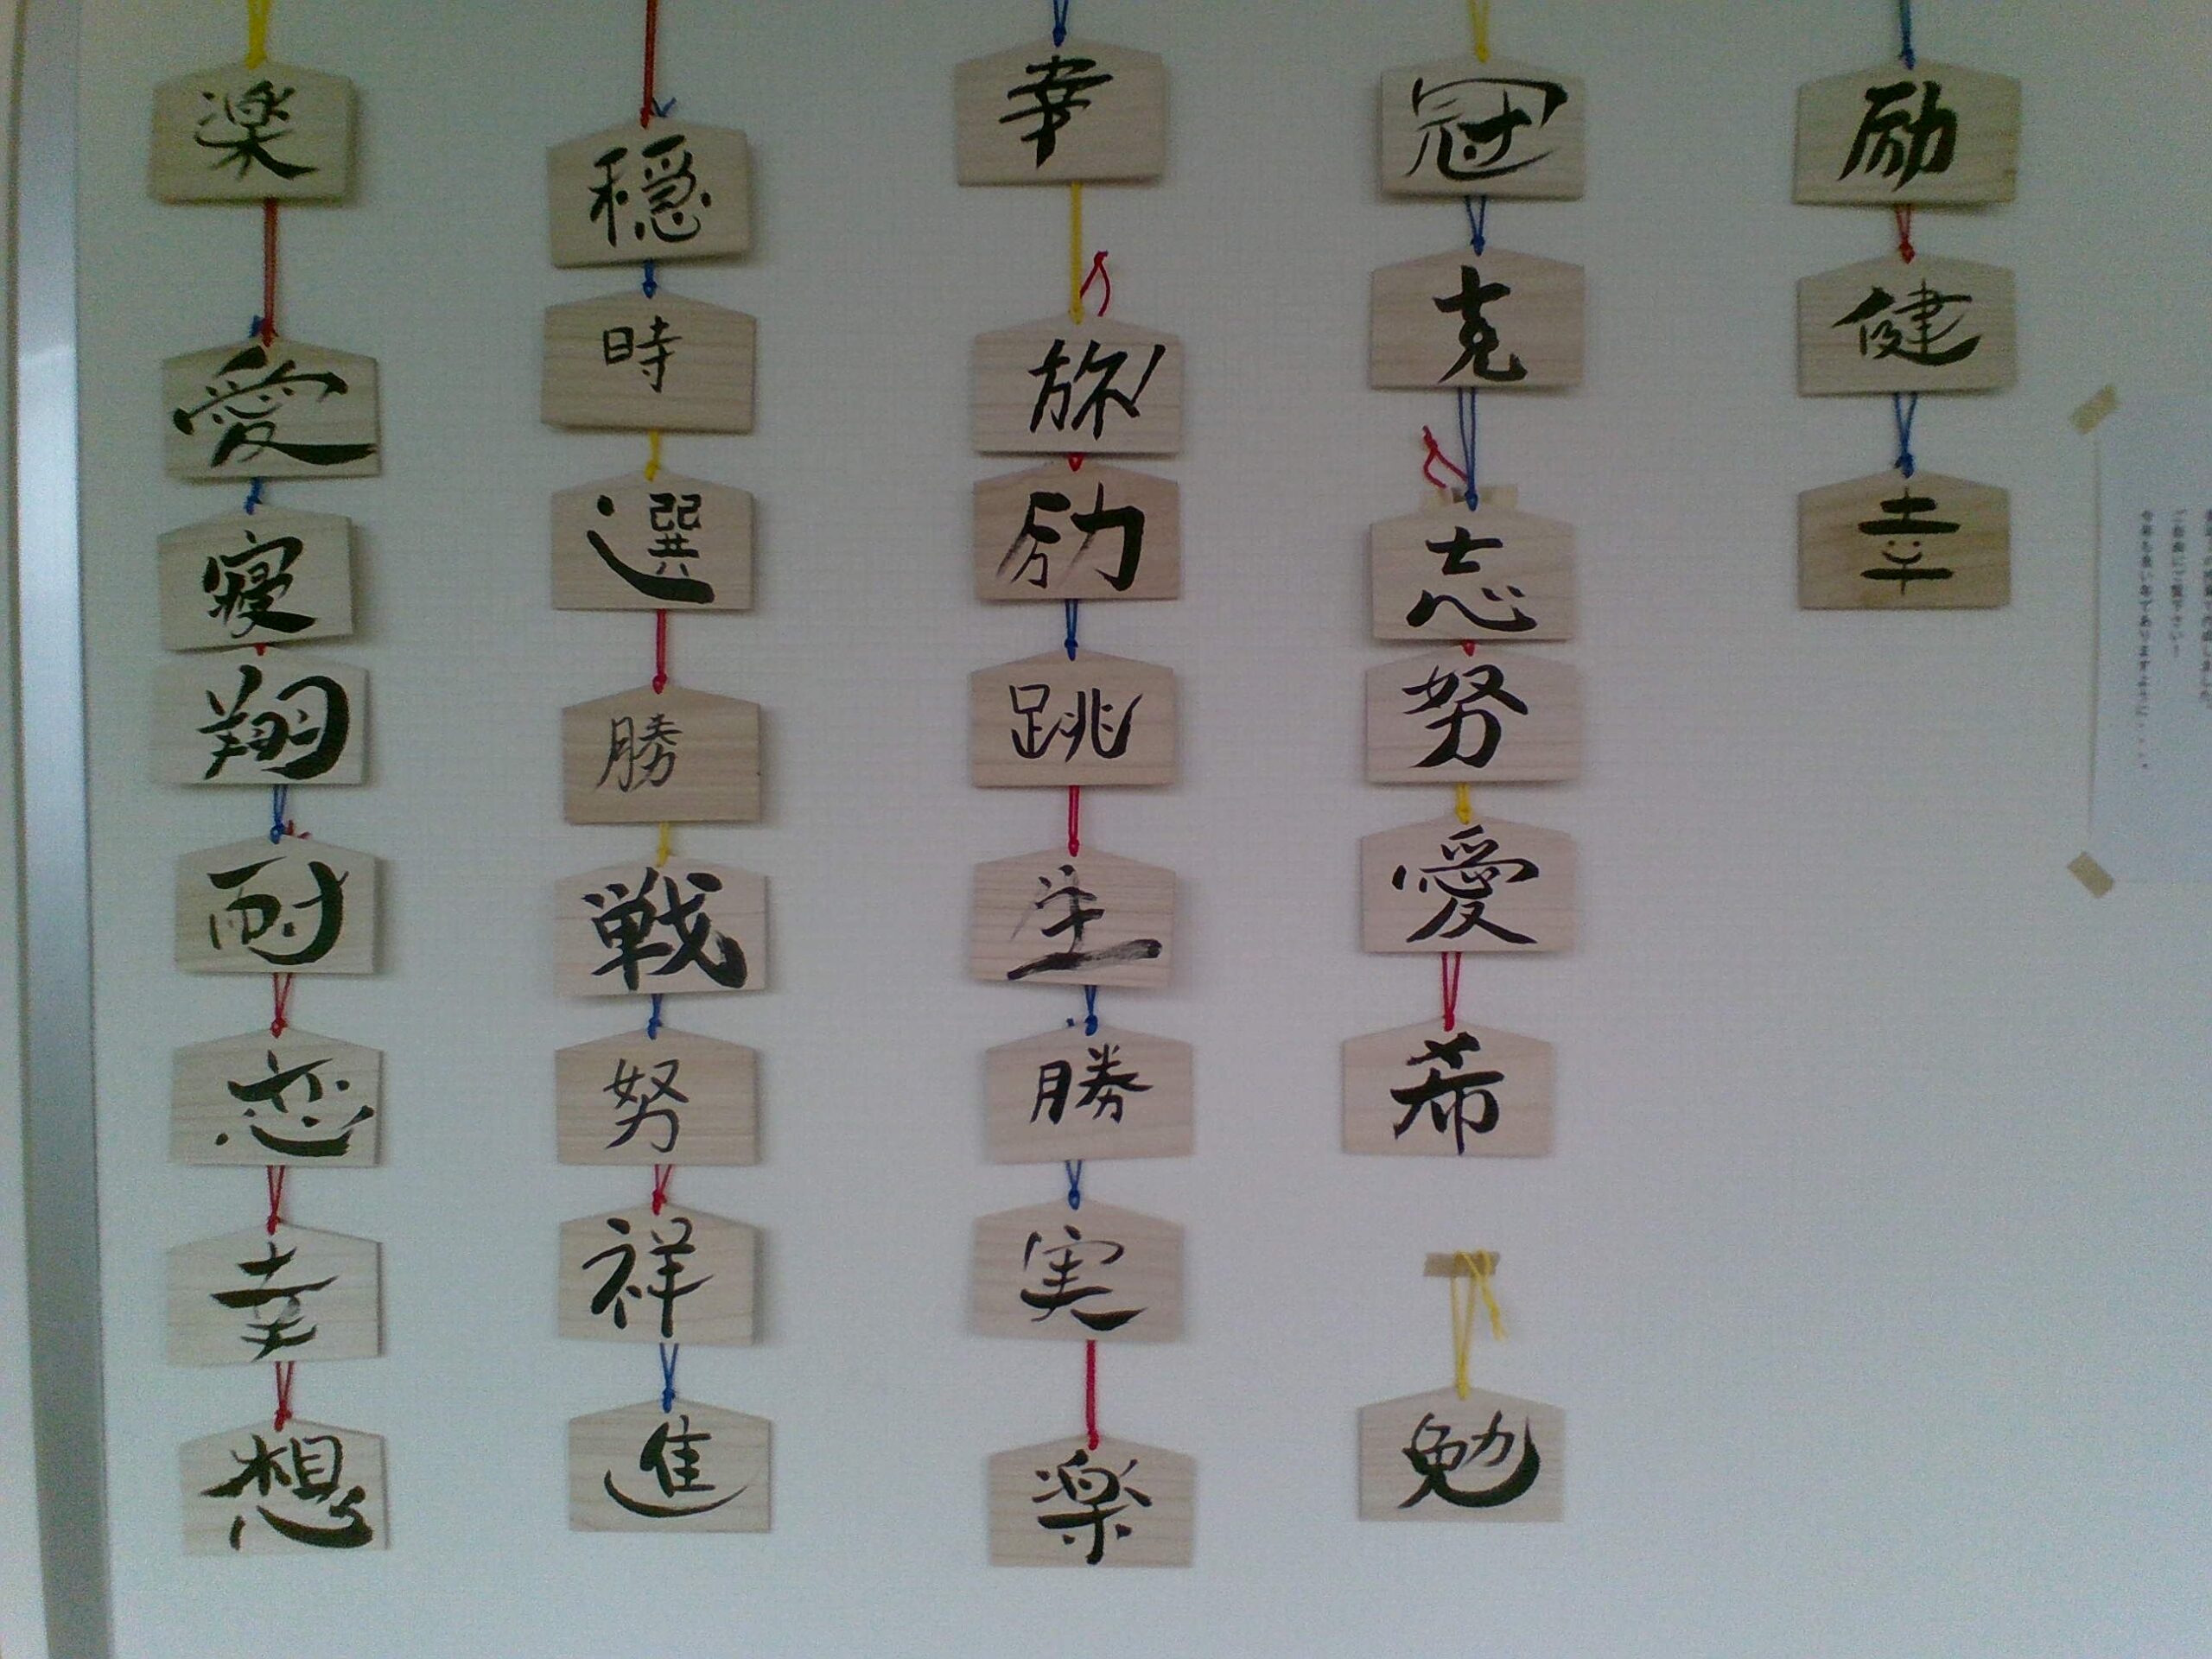 ご自由にご覧下さい！
今年も良い年でありますように・・・・
励
健
幸
冠
克
志
努
愛
希
勉
幸
旅
励
跳
生
勝
実
楽
穏
時
選
勝
戦
努
祥
進
楽
愛
寝
翔
耐
恋
幸
想